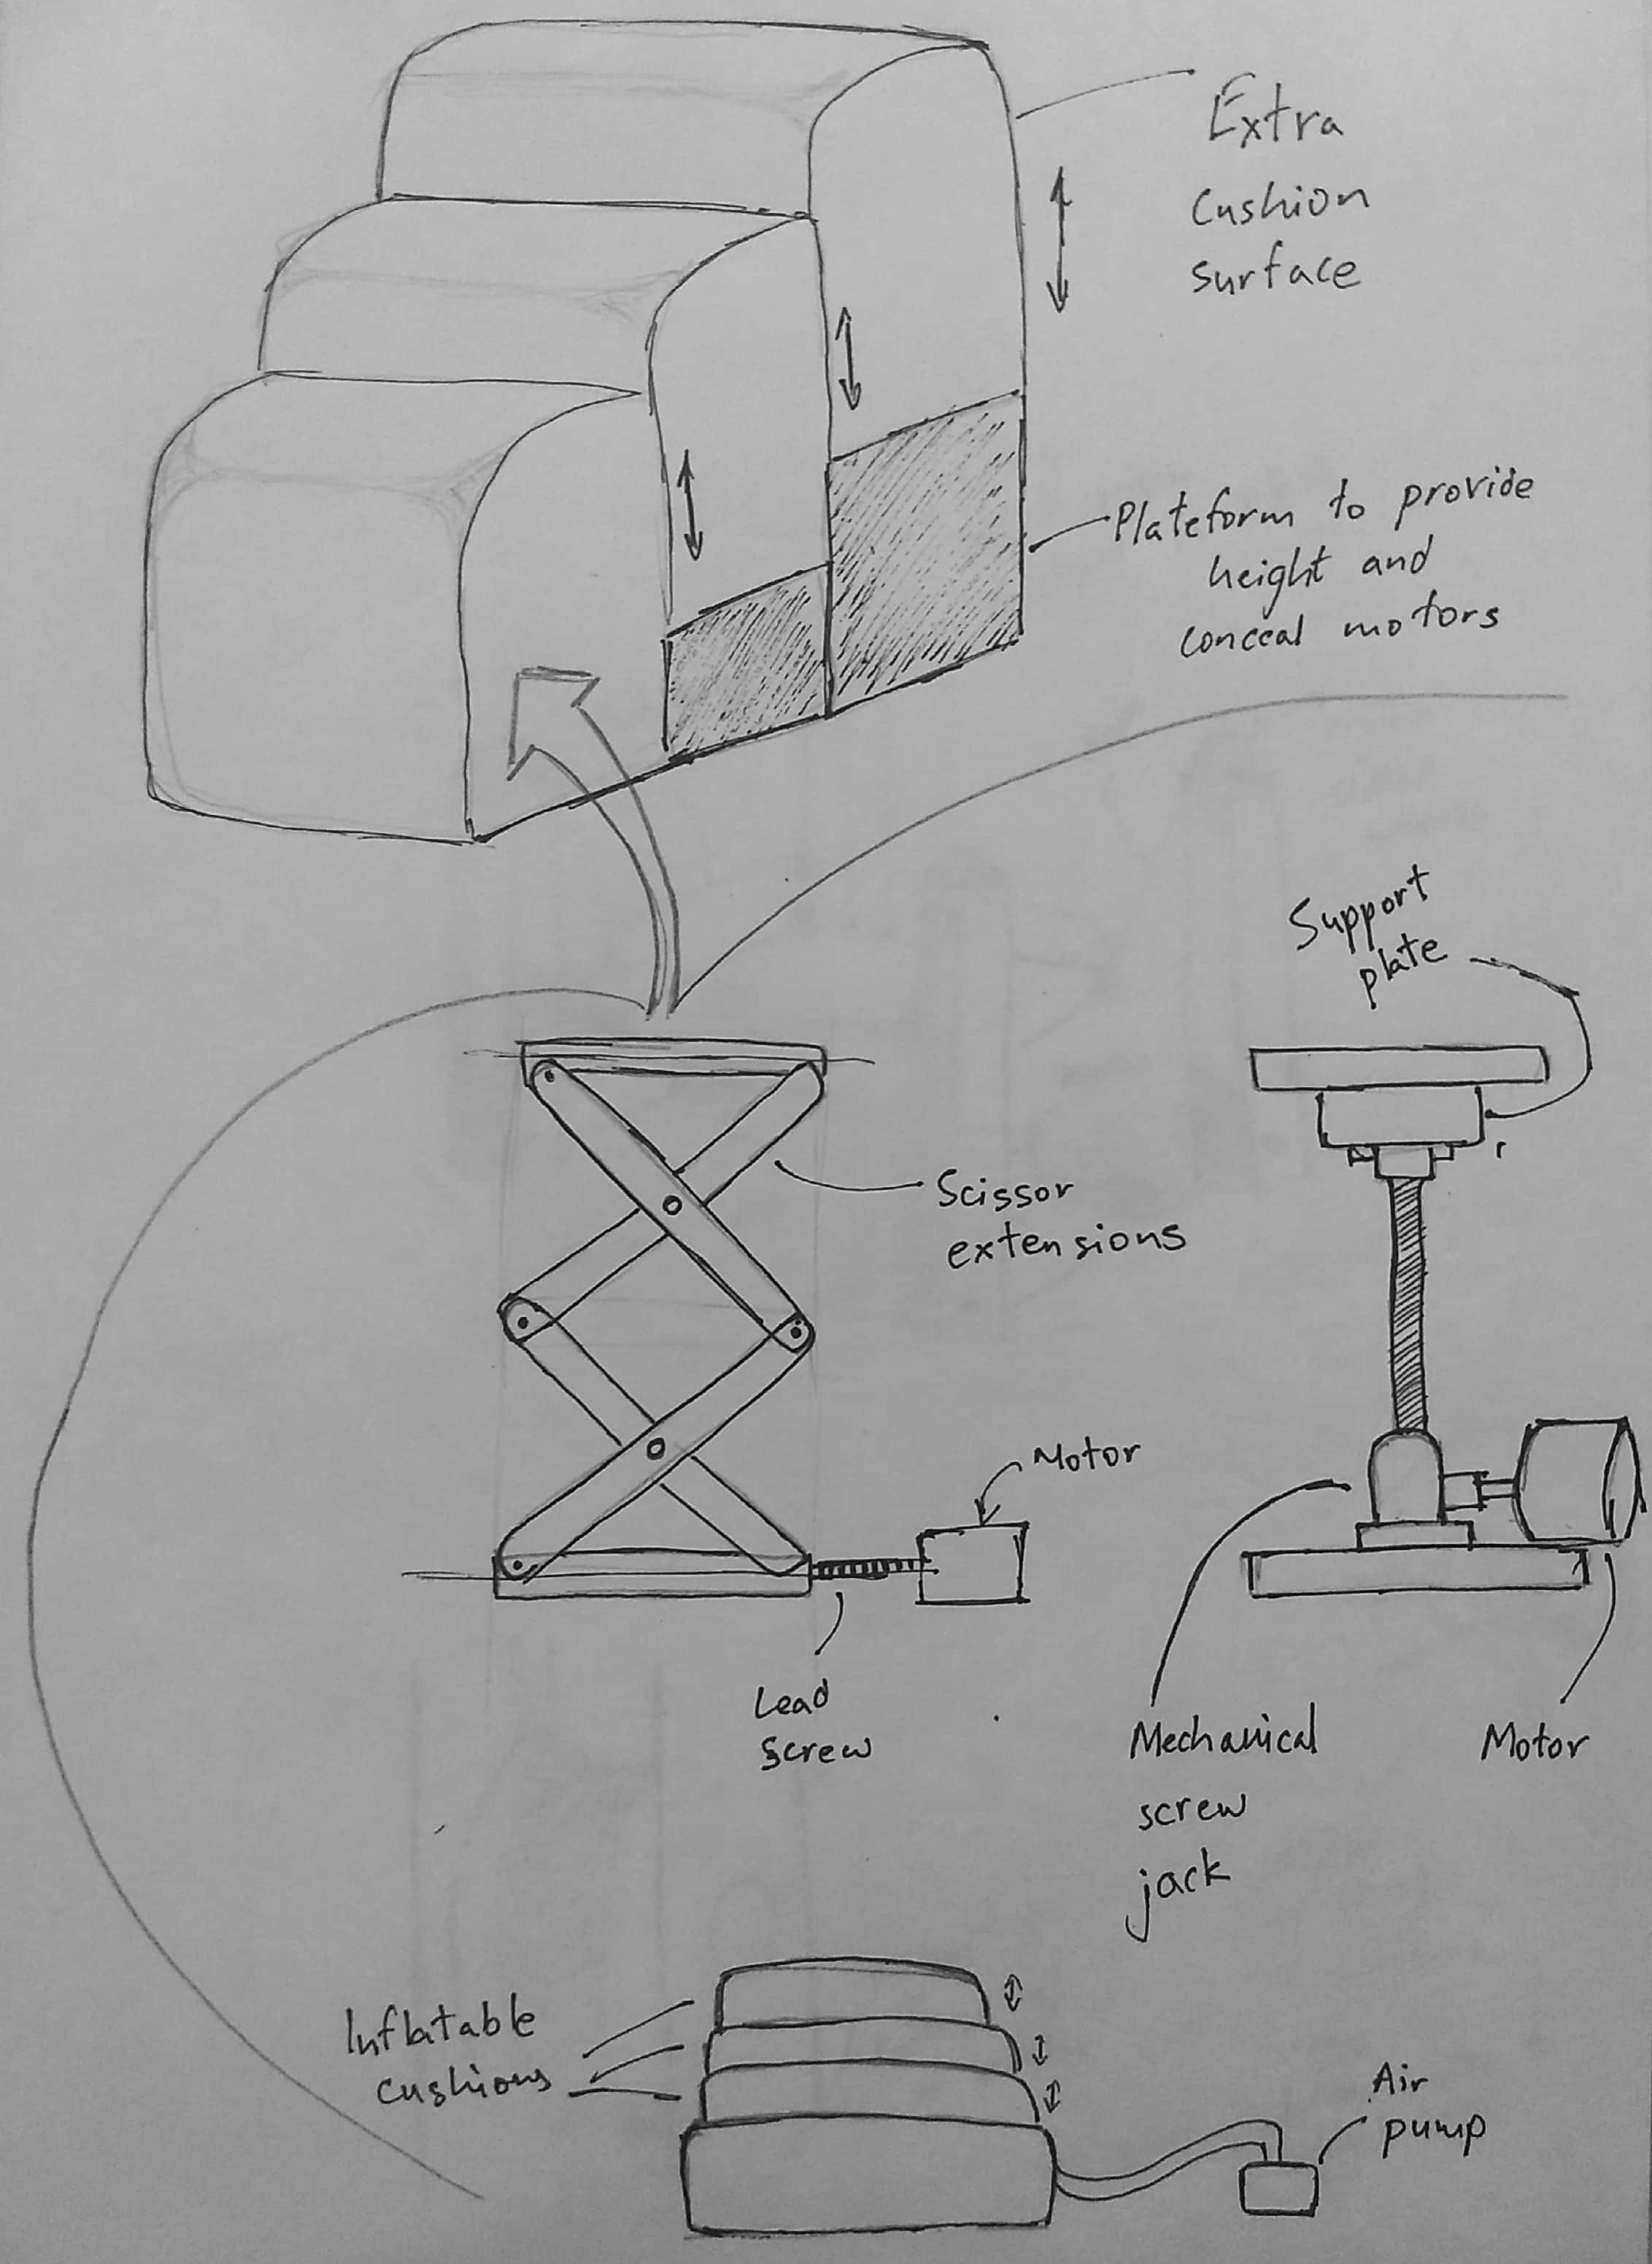 Extra
cushion
surface
Plateform to provide
height and
conceal motors
Support
plate
Scissor
extensions
Motor
Lead
screw
Mechanical
screw
jack
Motor
Inflatable
cushions
Air
pump